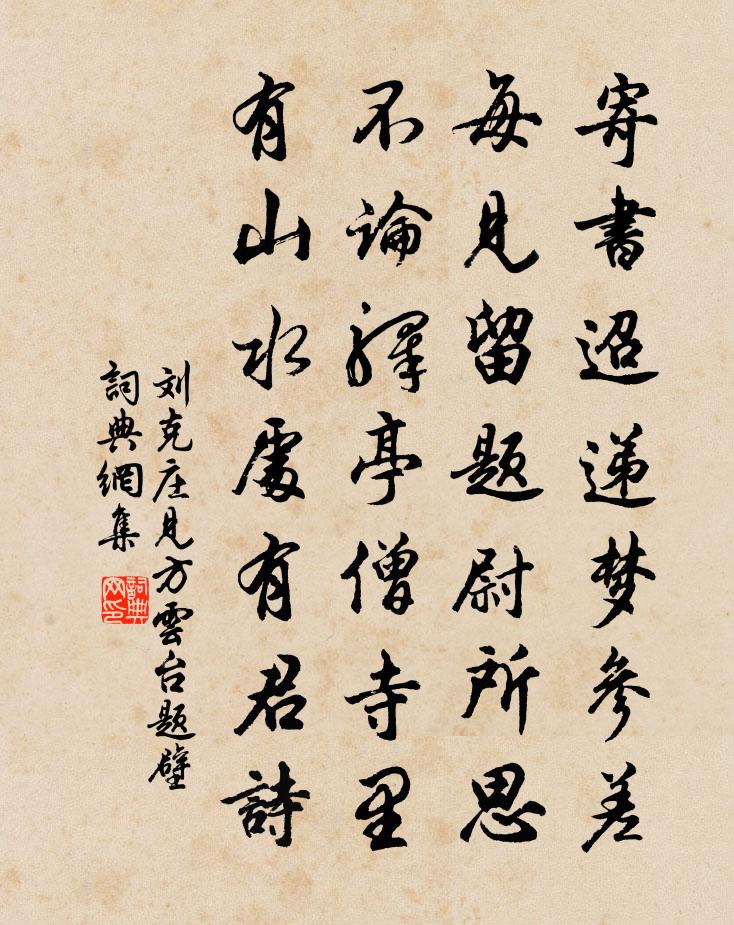 寄書迢递梦参差
每見留题尉所思
不論驛亭僧寺里
有山水處有君詩
刘克庄見方雲台题壁
詞典網集
詞典网印